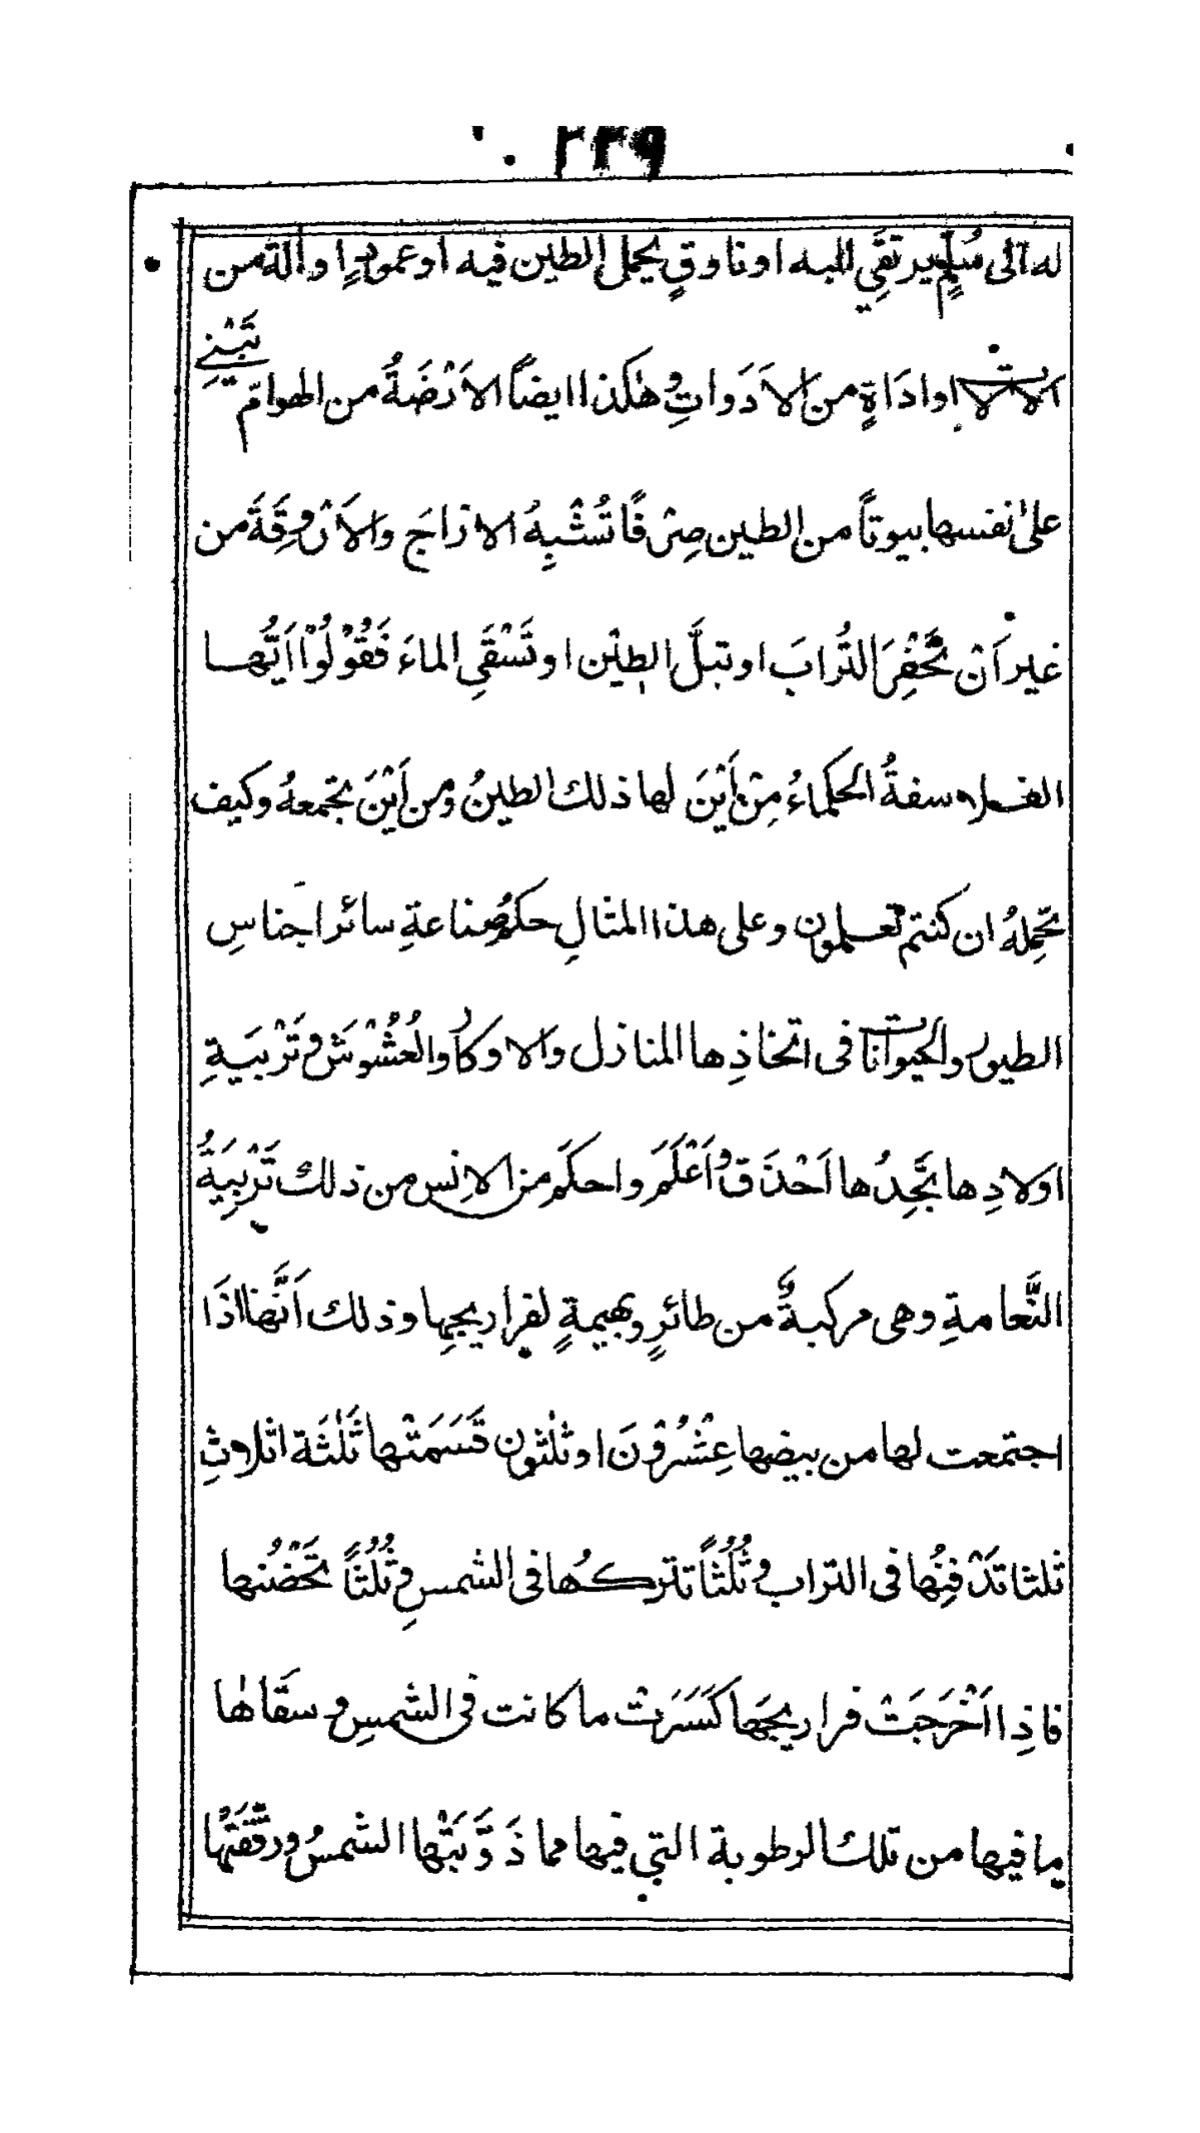 ٢٣٩
له الى سُلّمٍ يرتقَي اليه او ناوقٍ يحمل الطين فيه او عمودٍ او اٰلة من
الاٰلات او ادَاةٍ من الاَدَواتِ وهٰكذا ايضاً الاَرْضَةُ من الهوامّ تَبْنِي
علىٰ نفسها بيوتاً من الطين صِرْفًا تُشْبِهُ الازاجَ والاَرْوِقَةَ من
غير اَنْ تَحْفِرَ التُّرابَ او تبلَّ الطِيْن او تَسْقَي الماءَ فَقُوْلُوْا اَيُّهــا
الفــلاسفةُ الحكماءُ مِنْ اَيْنَ لها ذلك الطينُ ومن اَيْنَ تجمعهُ وكيف
تحَمِلهُ ان كنتم تعــلمون وعلى هذا المثالِ حكمُ صناعةِ سائر اجَناسِ
الطيور والحيوانات فى اتخاذِها المنازل والاوكاُر والعُشُوْشَ وتَرْبيَــةِ
اولادِها تَجِدُها اَحْذَقُ واَعْلَمَ واحكَم من الانس من ذلك تَرْبِيَةُ
النَّعامةِ وهى مركبةٌ من طائرٍ وبهيمةٍ لفراريجِها وذلك اَنَّها اذَا
اجتمعت لها من بيضها عِشْرُوْنَ او ثلٰثون قَسَمَتْها ثَلٰثَة اثلاثِ
ثلثا تدْفِنُها فى التراب وثُلُثاً تتركــُها فى الشمسِ وثُلُثاً تَحْضُنها
فاذِا اَخْرَجَتْ فراريجَها كَسَرَتْ ما كانت فى الشمسِ وسقَاهٰا
ما فيها من تلك الرطوبة التي فيها مما ذَوَّبَتْها الشمسُ ورقّقَتْها